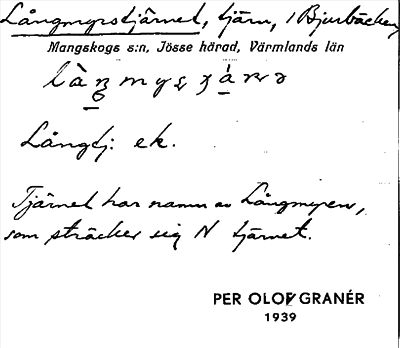 Långmyrstjärnet, tjärn, i Bjurbäcken
Mangskogs s:n, Jösse härad, Värmlands län
Långtj: ek.
Tjärnet har namn av Långmyren,
som sträcker sig N tjärnet.
PER OLOF GRANÉR
1939